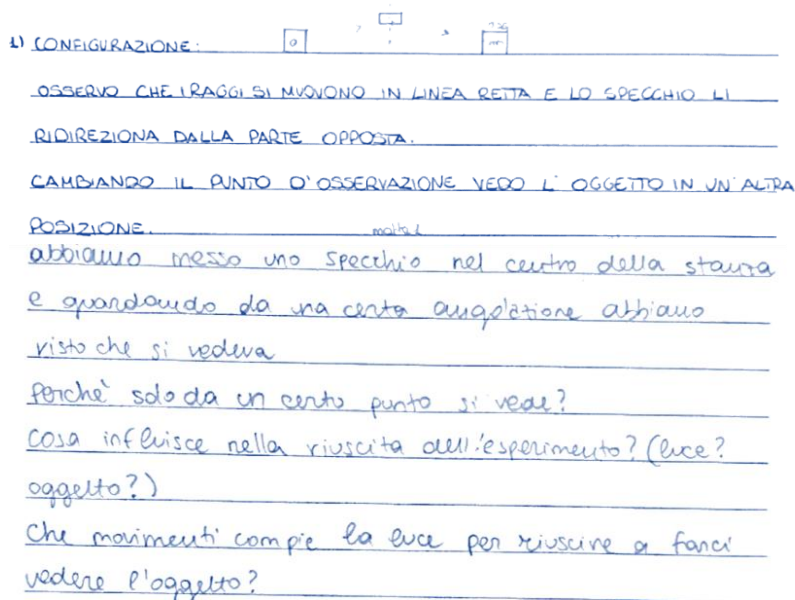 1) CONFIGURAZIONE:
OSSERVO CHE I RAGGI SI MUOVONO IN LINEA RETTA E LO SPECCHIO LI
RIDIREZIONA DALLA PARTE OPPOSTA.
CAMBIANDO IL PUNTO D'OSSERVAZIONE VEDO L'OGGETTO IN UN'ALTRA
POSIZIONE.
abbiamo messo uno specchio nel centro della stanza
e guardando da una certa angolazione abbiamo
visto che si vedeva
perchè solo da un certo punto si vede?
cosa influisce nella riuscita dell'esperimento? (luce?
oggetto?)
che movimenti compie la luce per riuscire a farci
vedere l'oggetto?